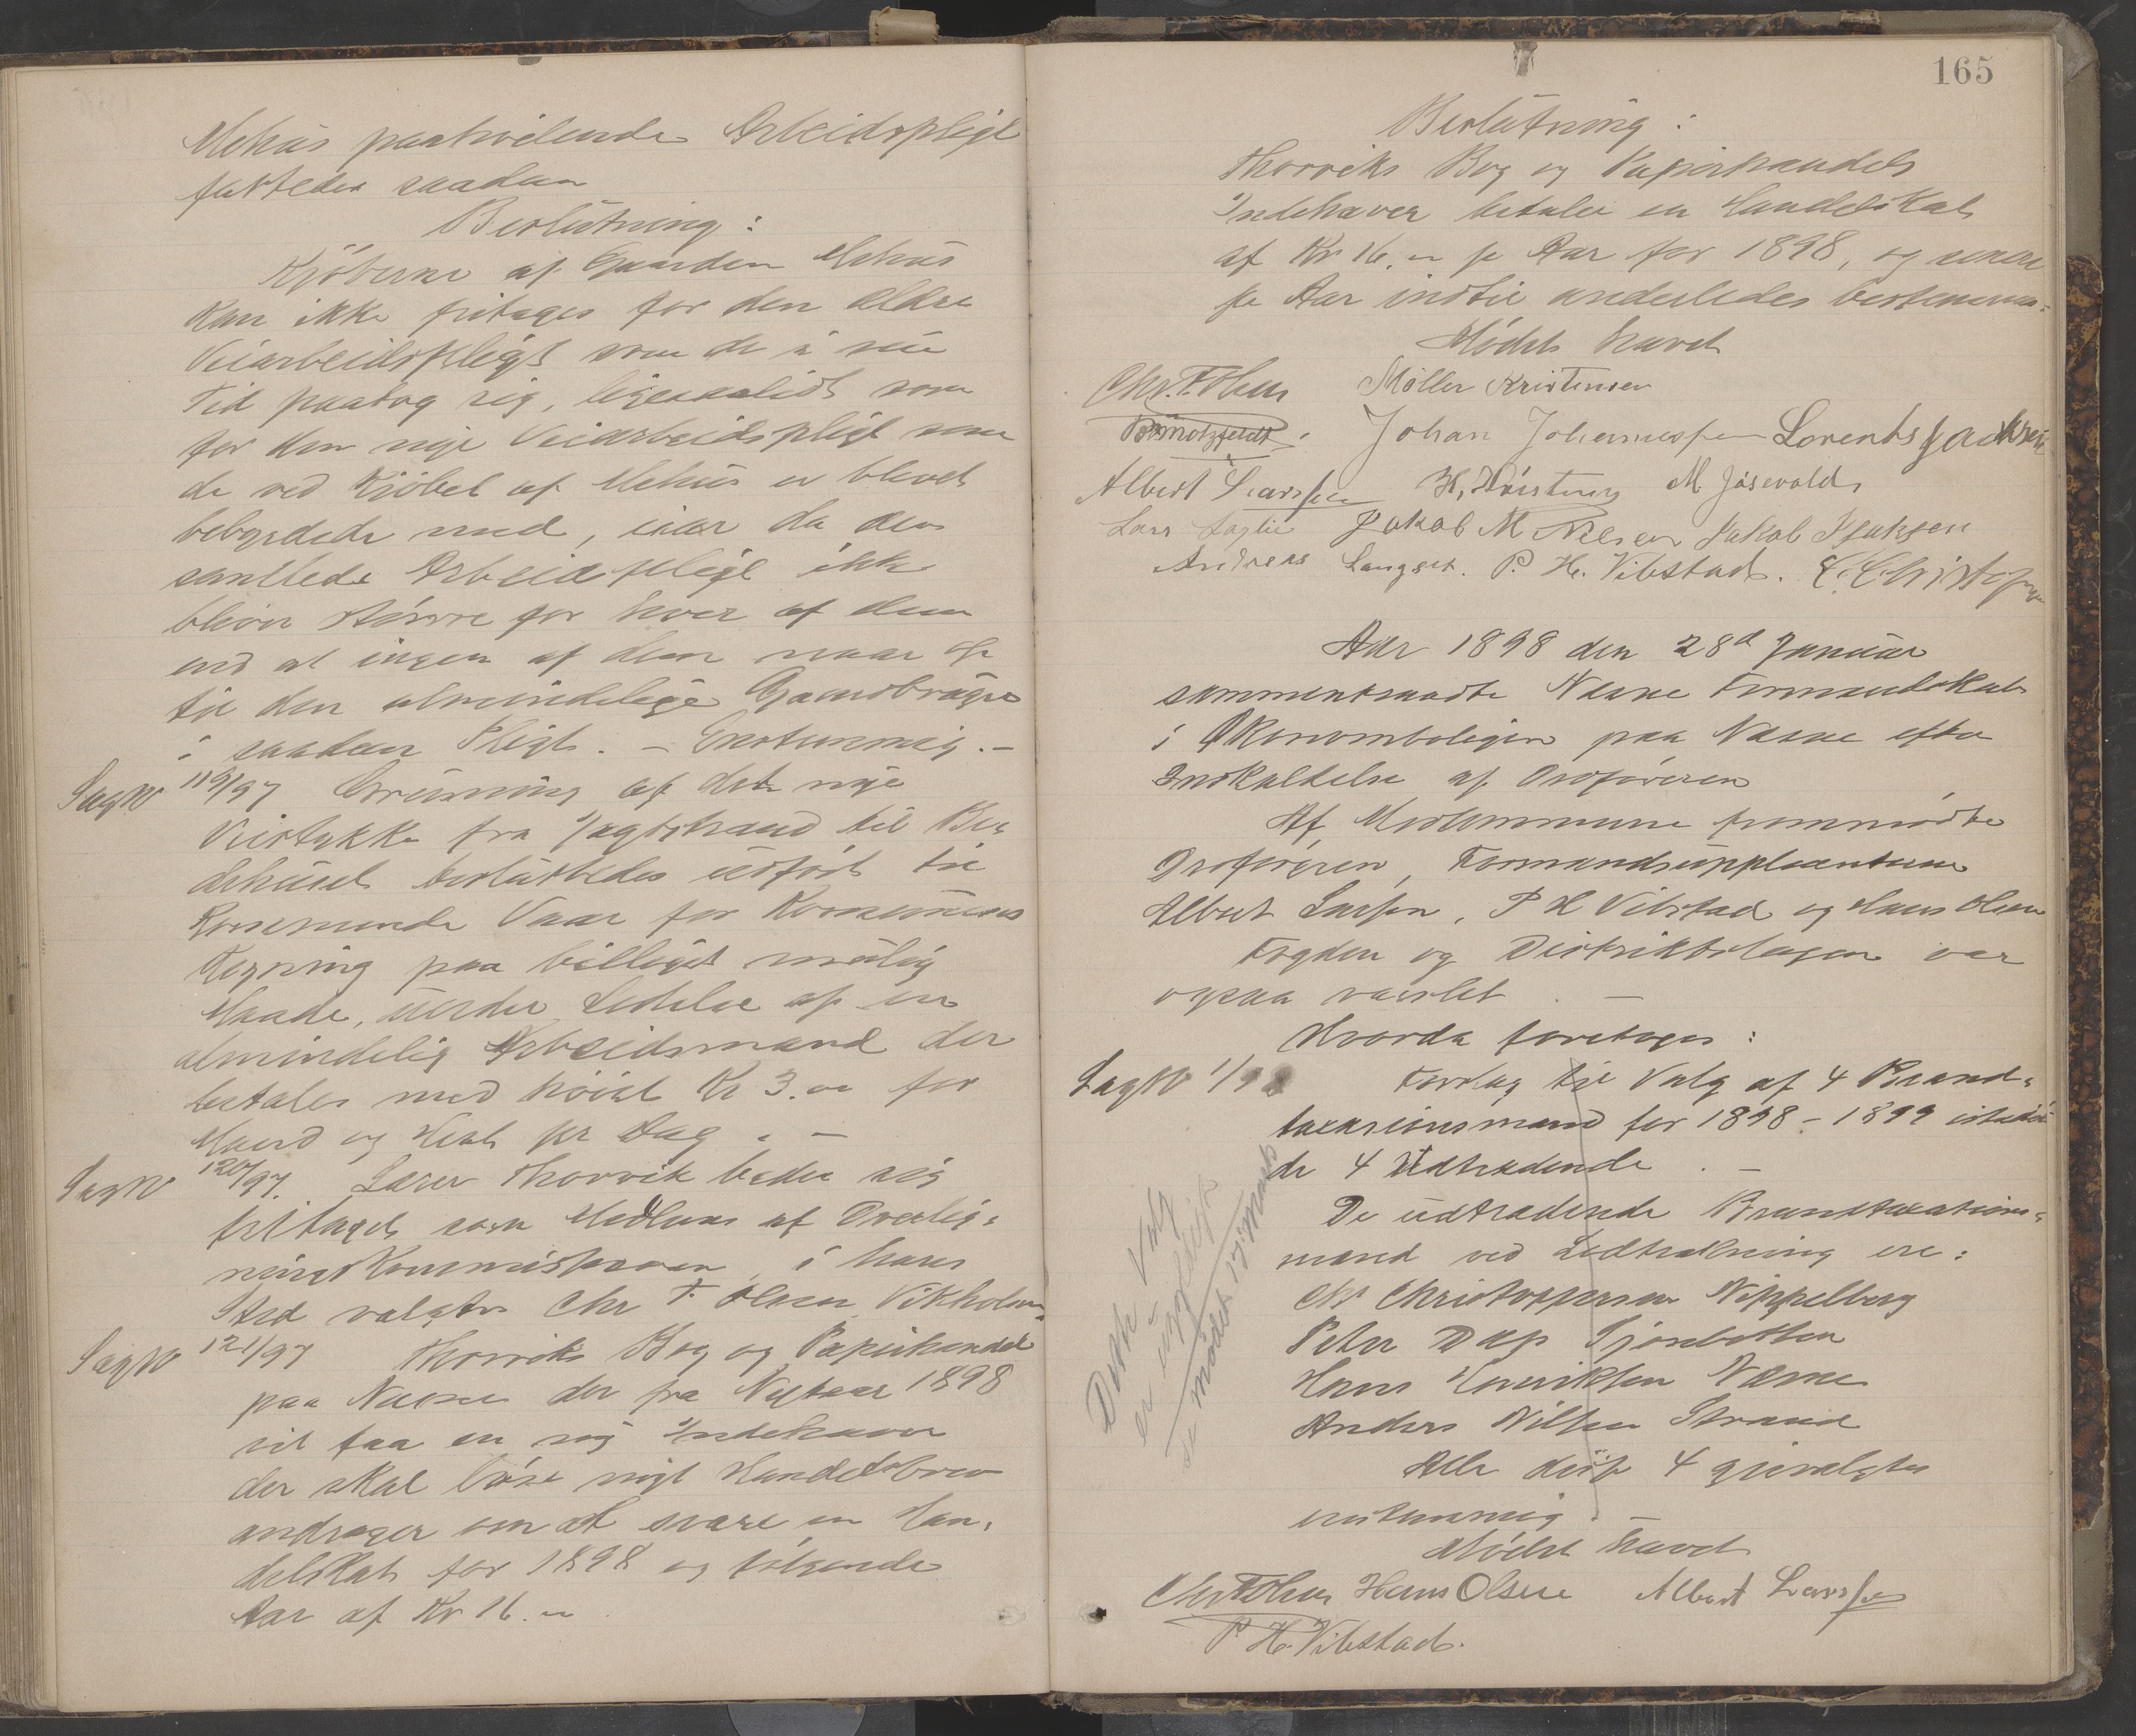 Mehus paahvilende Arbeidspligt
fattedes saadan
Beslutning:
Kjöberne af Gaarden Mehus
kan ikke fritages for den ældre
Veiarbeidspligt som de i sin
Tid paatog sig, ligesaalidt som
for den nye Veiarbeidspligt som
de ved Kjöbet af Mehus er blevet
bebyrdede med, især da den
samlede Arbeidspligt ikke
bliver större for hver af dem
end at ingen af dem naar op
til den almindelige Gaardbruger
i saadan Pligt. - Enstemmig. -
Sag No 119/97 Grusning af det nye
Veistykke fra Jagtstrand til Be-
dehuset besluttedes udfört til
kommende Vaar for Kommunens
Regning paa billigst mulig
Maade, under Ledelse af en
almindelig Arbeidsmand der
betales med höist Kr 3.00 for
Mand og Hest pr Dag. -
Sag No 120/97. Lærer Thorvik beder sig
fritaget som Medlem af Overlig-
ningskommissionen, i hans
Sted valgtes Chr F. Olsen Vikholmen
Sag No 121/97 Thorviks Bog og Papirhandel
paa Næsne der fra Nytaar 1898
vil faa en ny Indehaver
der skal löse nyt Handelsbrev
andrager om at svare en Han-
delskat for 1898 og fölgende
Aar af Kr 16.00
165
Beslutning:
Thorviks Bog og Papirhandels
Indehaver betaler en Handelskat
af Kr 16.00 pr Aar for 1898, og senere
pr Aar indtil anderledes bestemmes.
Mödet hævet
Chr. F. Olsen Møller Kristensen
Johan Johannessen Lorents Jackson
Albert Larssen M Jösevold
Lars Jakob M Nilsen Jakob Isaksen
Andreas Langset. P. H. Vibstad. C. Christophersen
Aar 1898 den 28d Januar
sammentraadte Næsne Formandskab
i Ökonomboligen paa Næsne efter
Indkaldelse af Ordföreren
Af Medlemmerne fremmödte
Ordföreren, Formandsuppleanterne
Albert Larsen, P H Vibstad og Hans Olsen
Fogden og Distriktslægen var
ogsaa varslet. -
Hvorda foretoges:
Sag No 1/98 Forslag til Valg af 4 Brand-
taxasionsmænd for 1898 - 1899 istedet
de 4 Udtrædende. -
De udtrædende Brandtaxations-
mænd ved Lodtrækning ere:
Chr Christoffersen Nippelberg
Peter Dass Sjonbotten
Hans Henriksen Næsne
Anders Nilsen Strand
Alle disse 4 gjenvalgtes
enstemmig. -
Mödet hævet
Dette Valg
er ugyldigt
se mödet 17 Marts
Chr F Olsen Hans Olsen Albert Larssen
P. H. Vibstad.